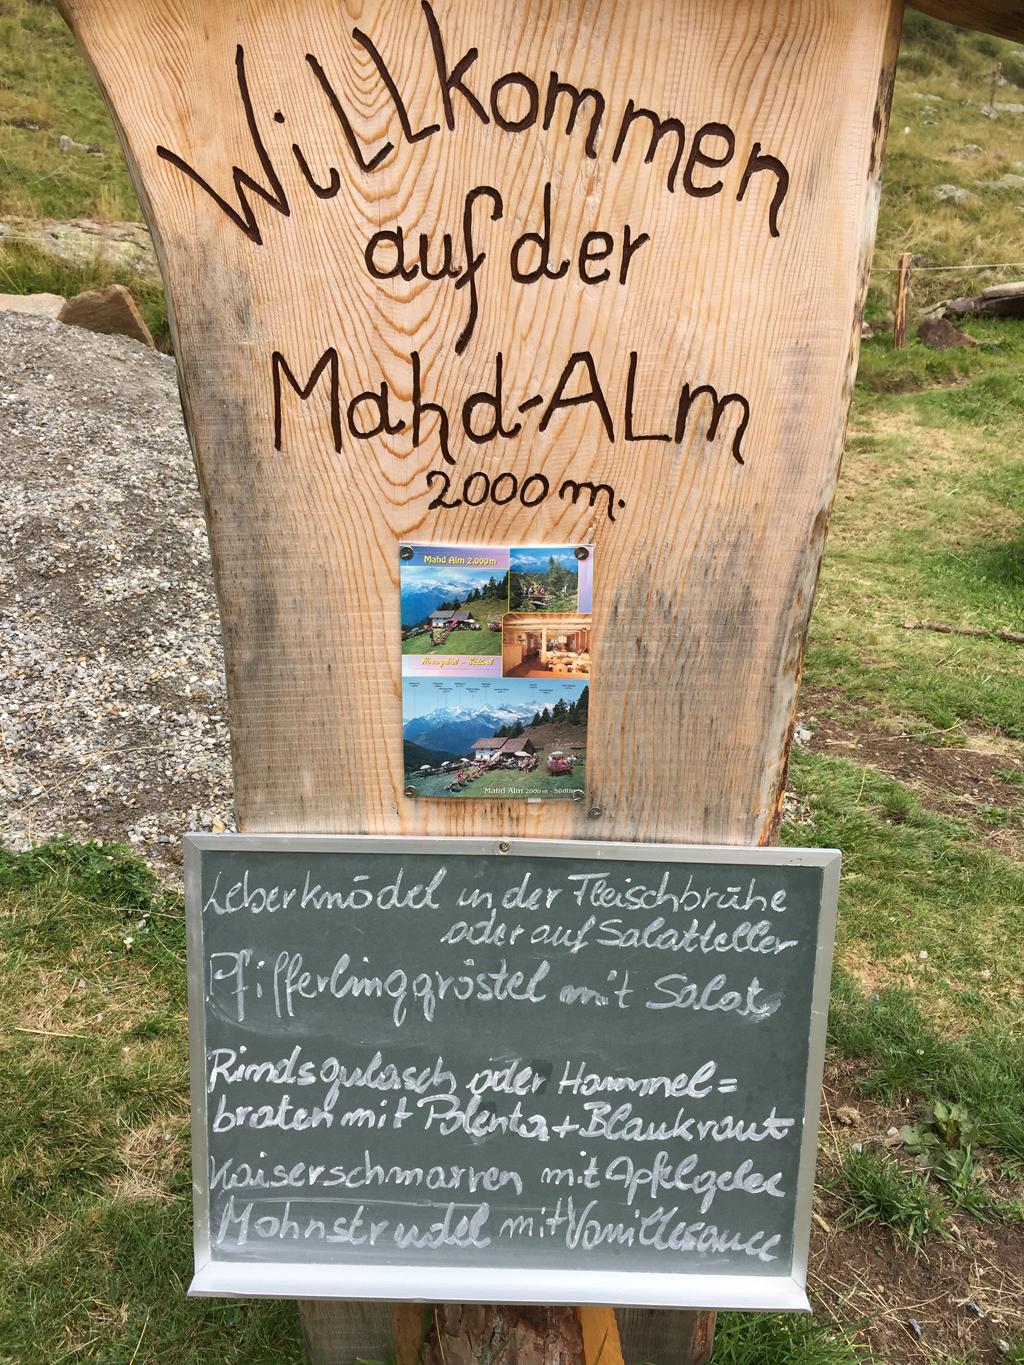 Willkommen
auf der
Mahd-Alm
2000 m.
Mahd Alm 2.000m
Mahd Alm 2000 m - Südtirol
Leberknödel in der Fleischbrühe
oder auf Salatteller
Pfifferlinggröstel mit Salat
Rindsgulasch oder Hammel=
braten mit Polenta + Blaukraut
Kaiserschmarren mit Apfelgelee
Mohnstrudel mit Vanillesauce